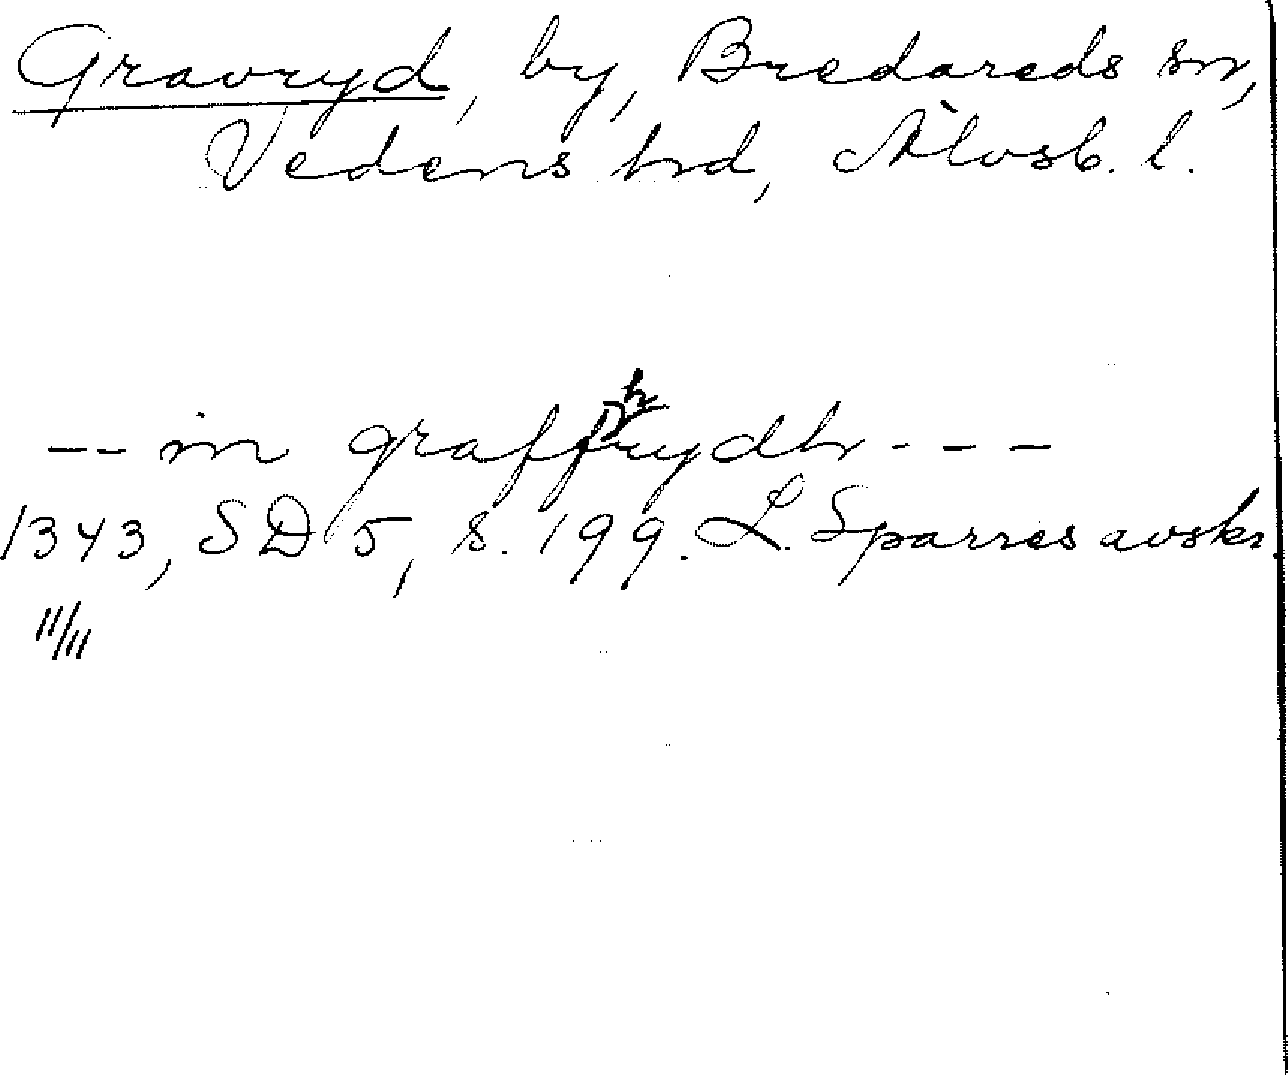 Gravryd, by, Bredareds sn,
Vedens hd, Älvsb. l.
h
-- in graffrydh - - -
1343, SD 5, s. 199. L. Sparres avskr.
11/11